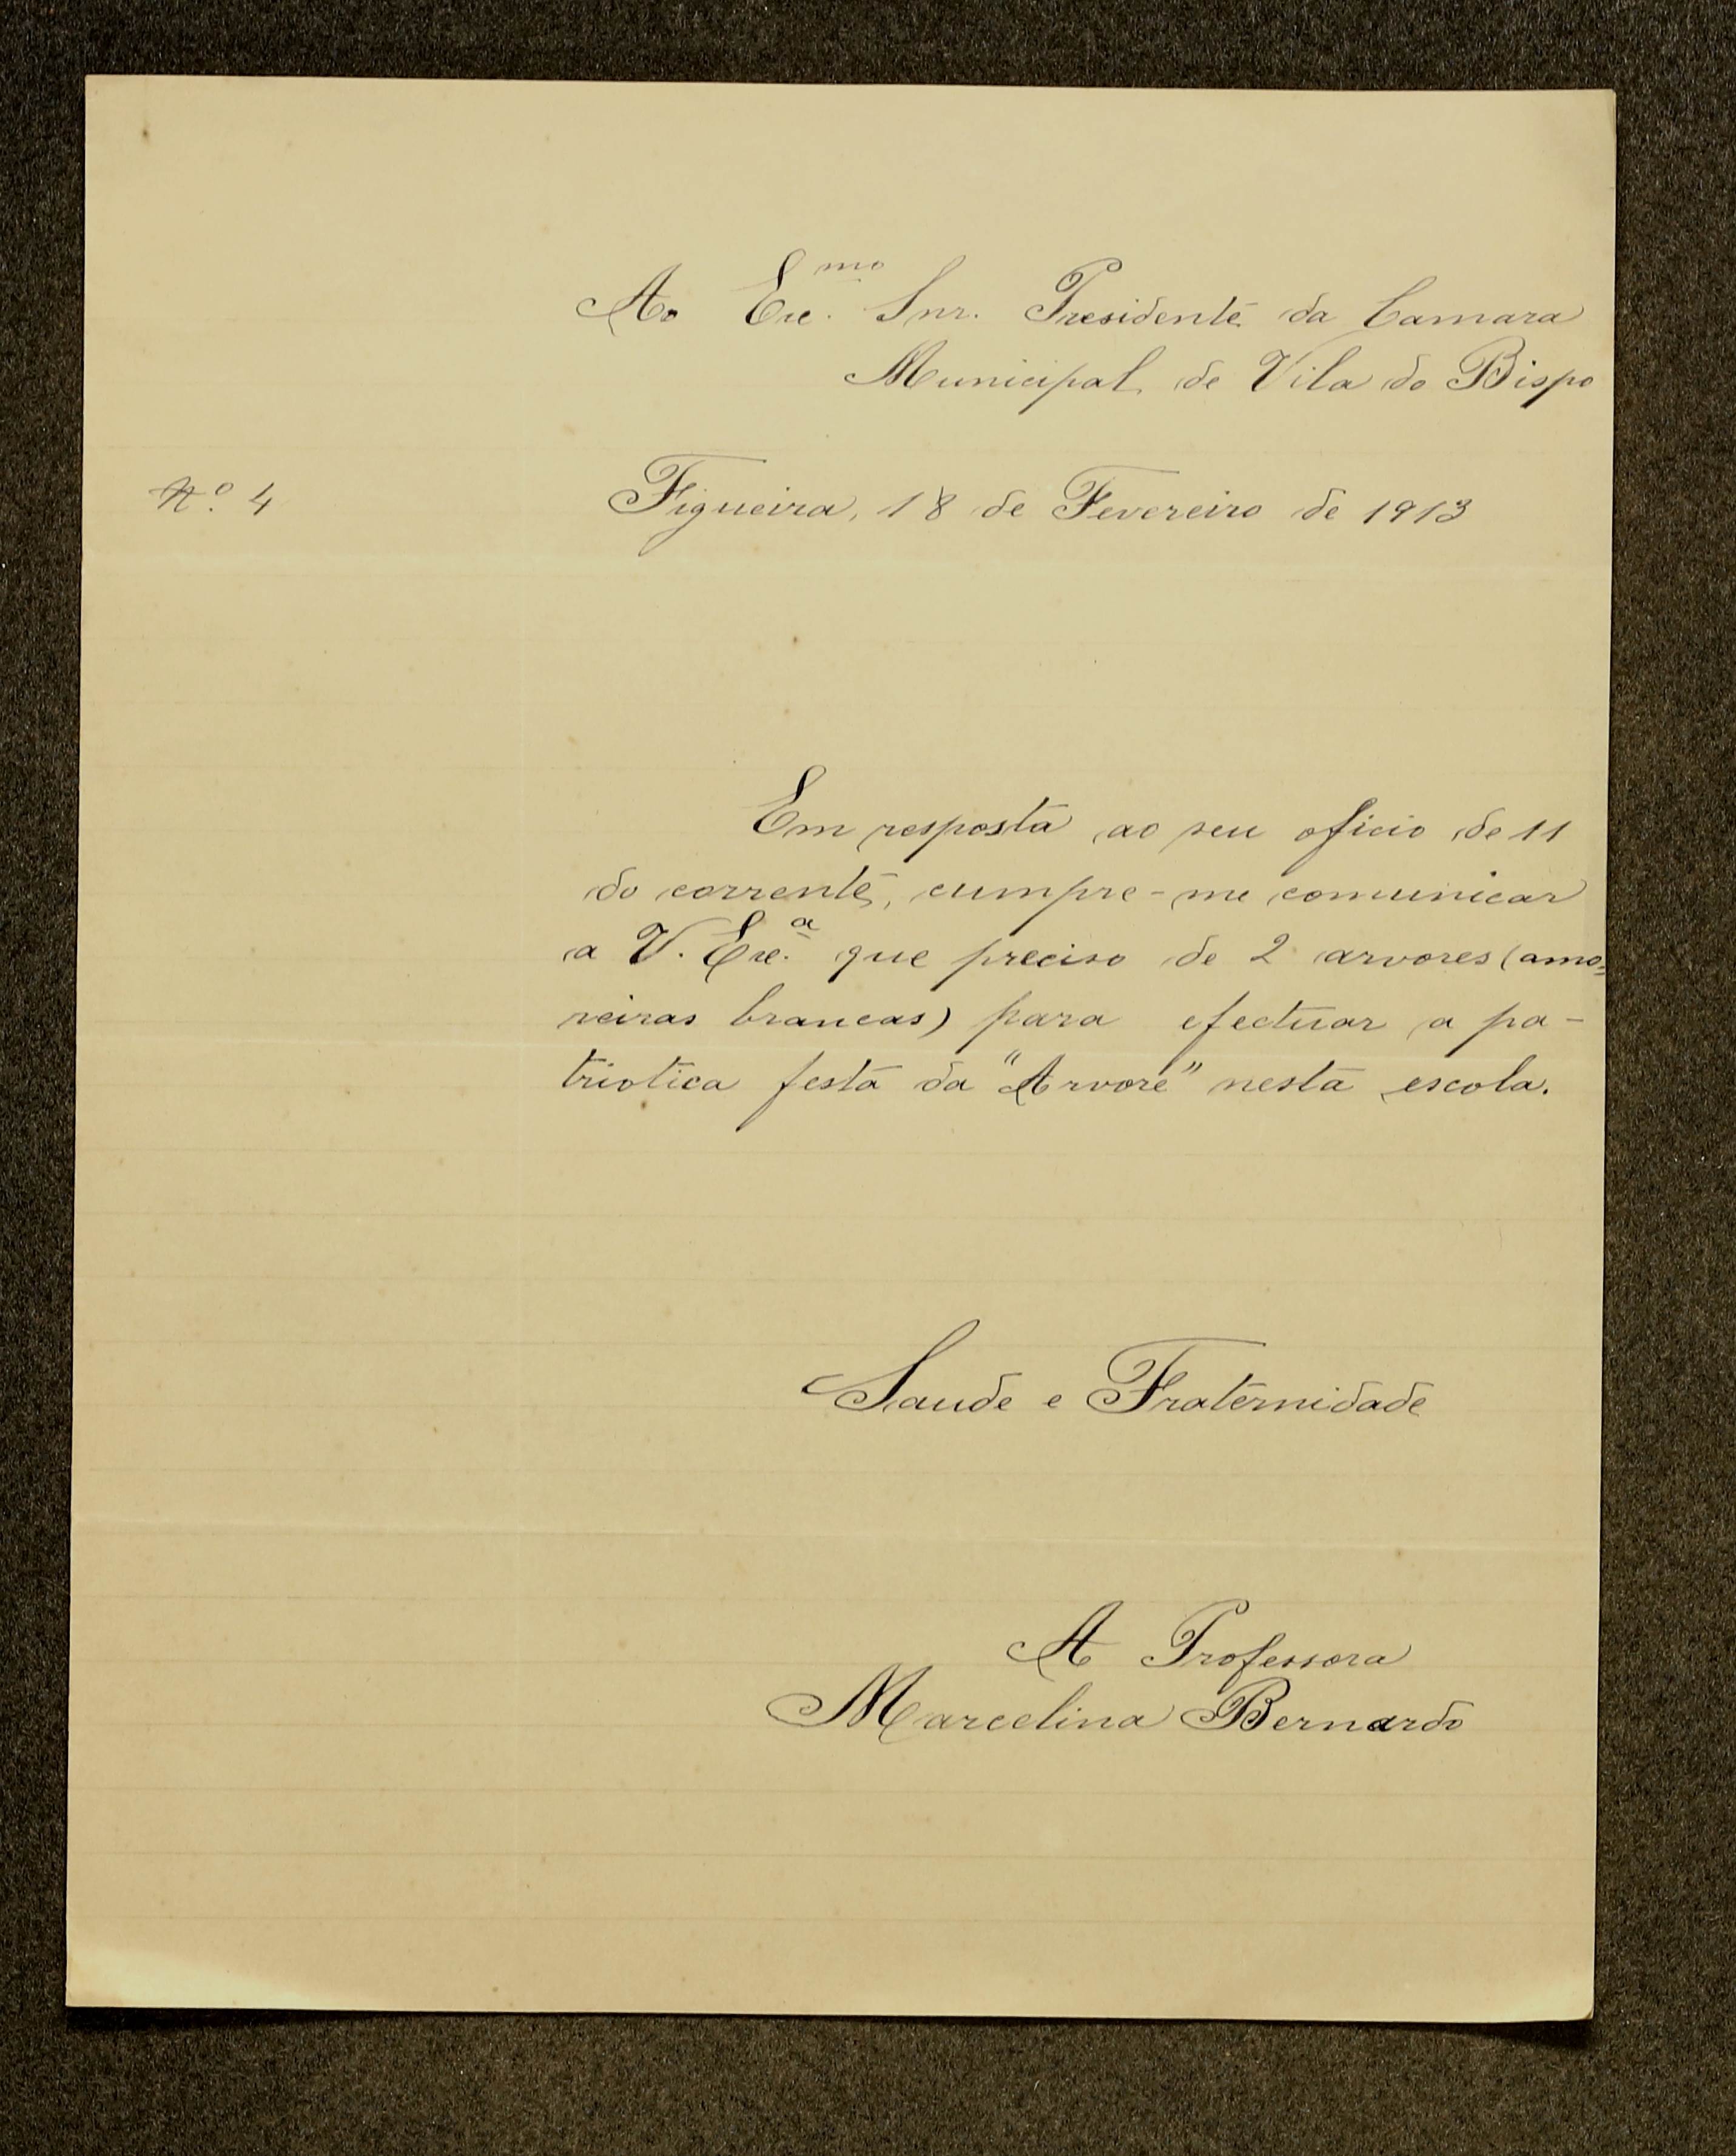 Ao Exc.mo Snr. Presidente da Camara
Municipal de Vila do Bispo
N.º 4
Figueira, 18 de Fevereiro de 1913
Em resposta ao seu oficio de 11
do corrente, cumpre-me comunicar
a V. Exc.ª que preciso de 2 arvores (amo=
reiras brancas) para efectuar a pa-
triotica festa da "Arvore" nesta escola.
Saude e Fraternidade
A Professora
Marcelina Bernardo